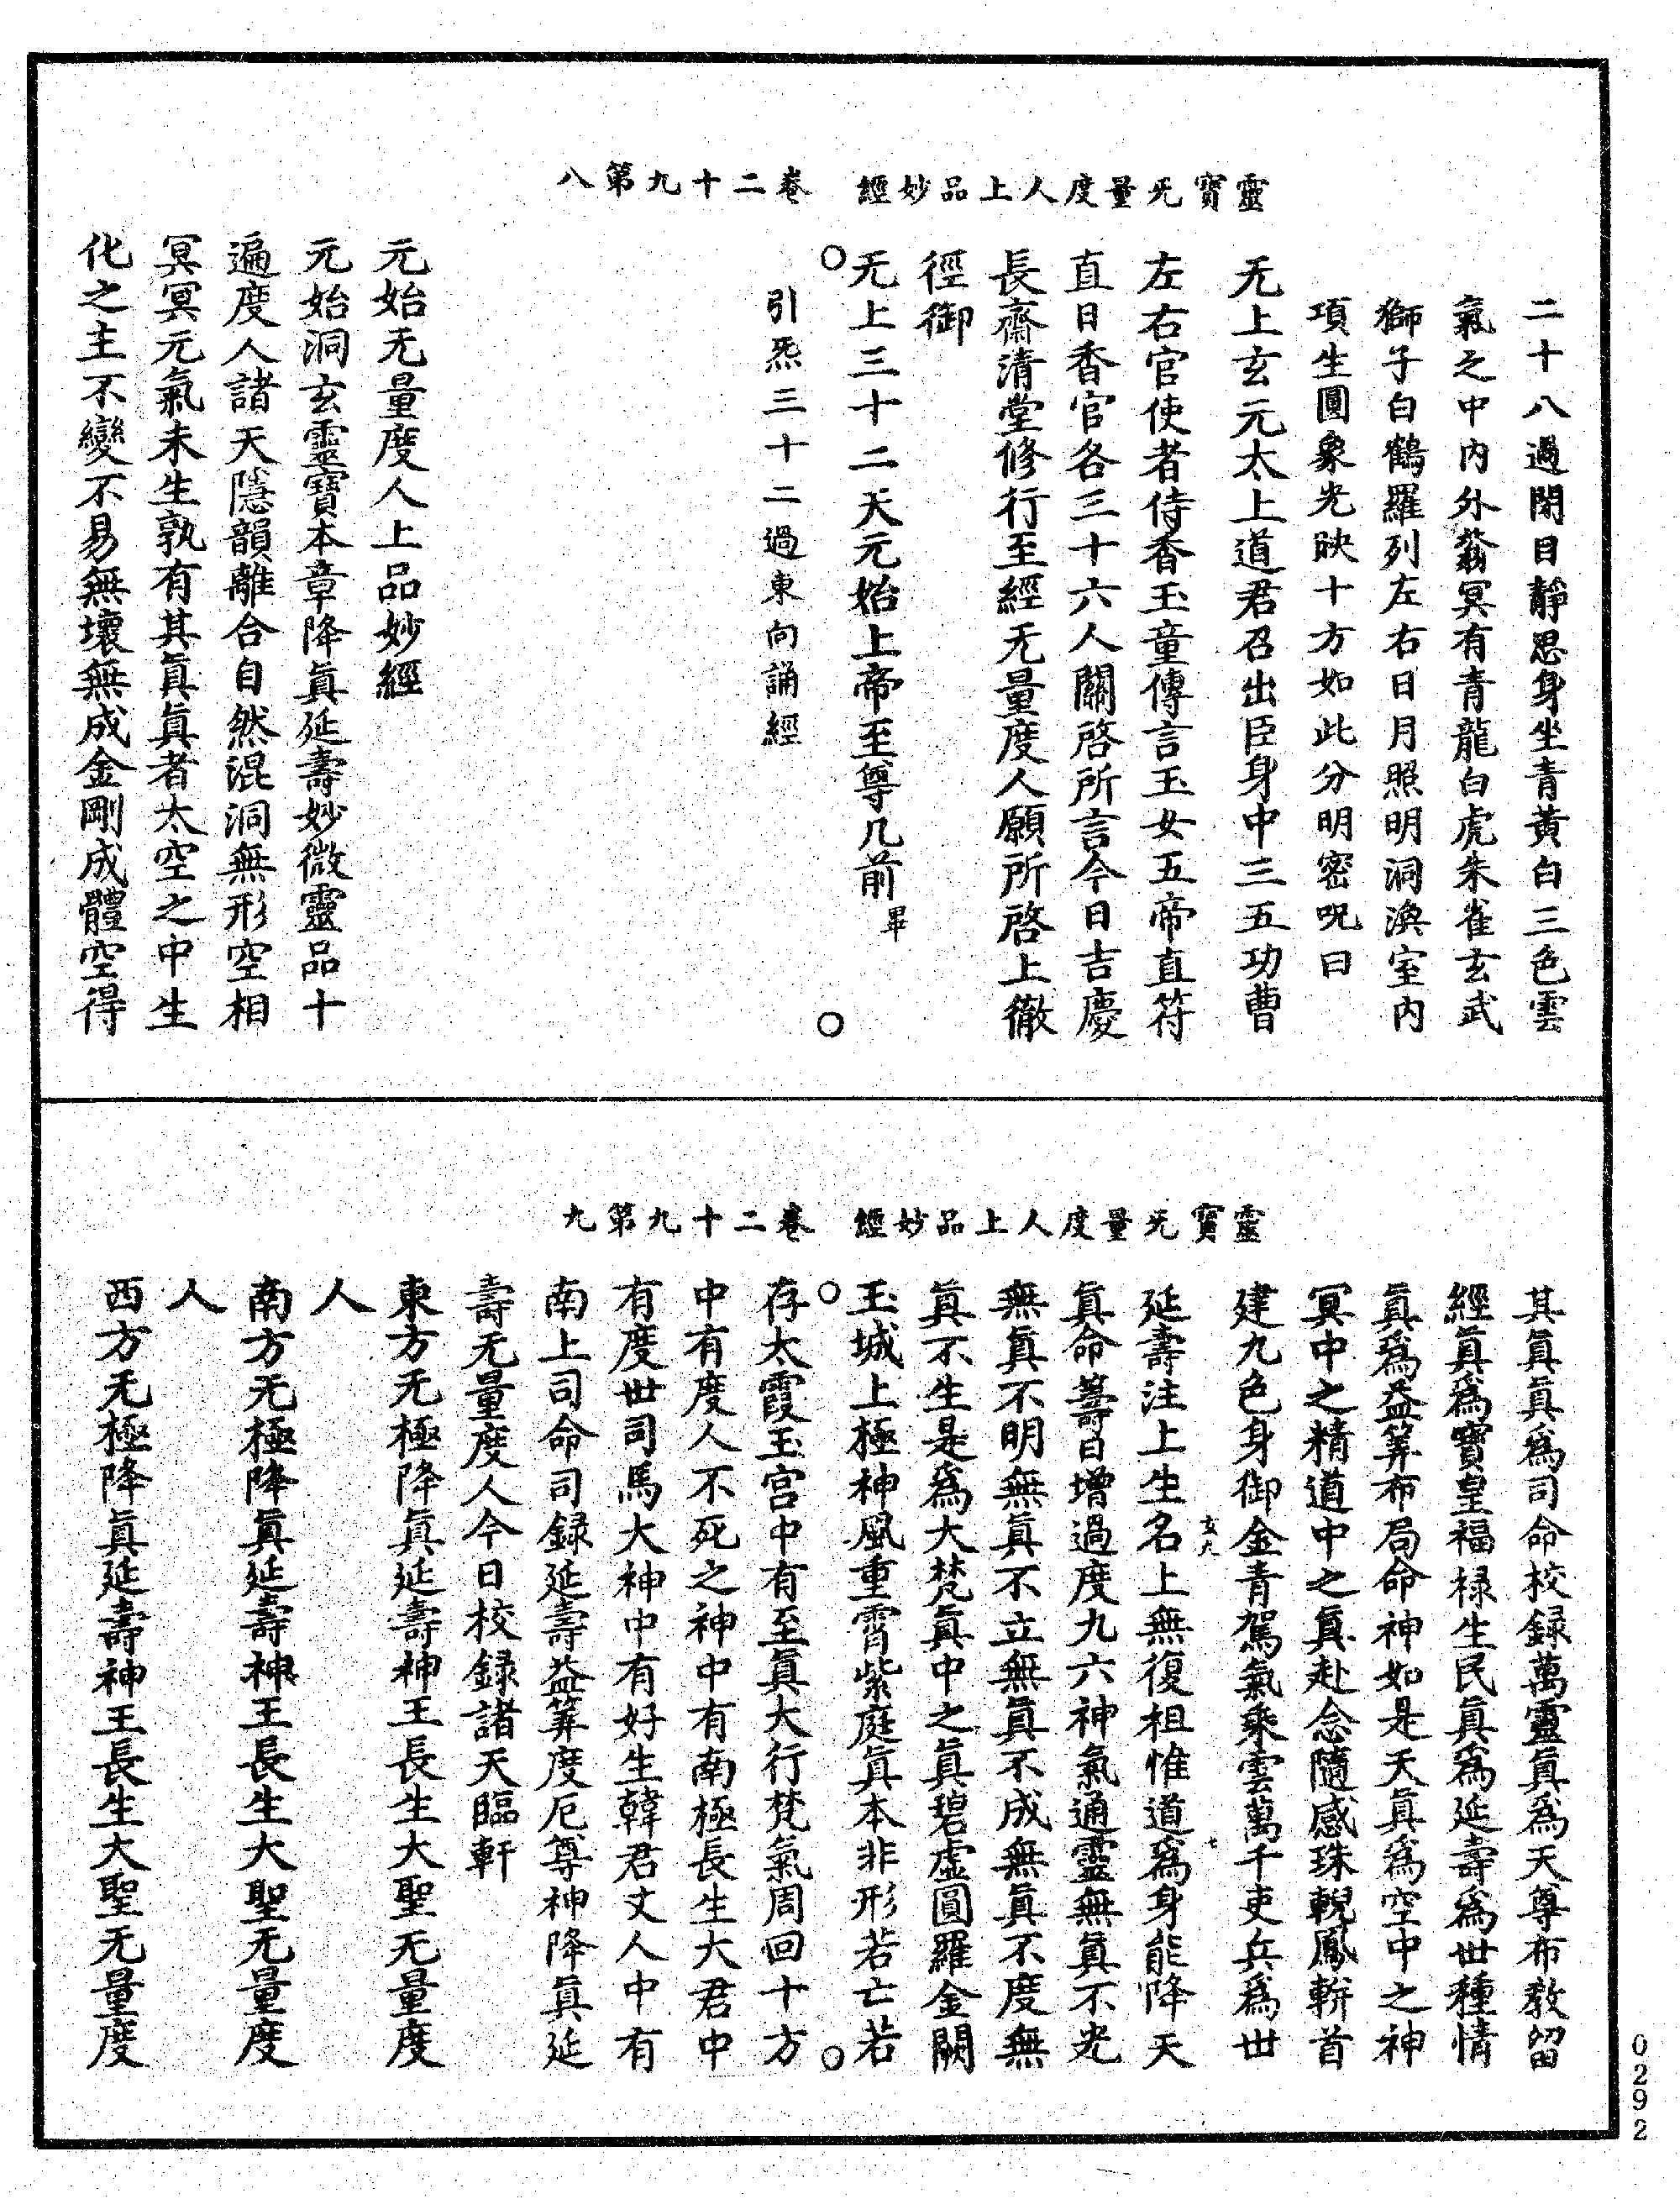 靈寶无量度人上品妙經　卷二十九第八
二十八過閉目靜思身坐青黃白三色雲
氣之中內外蓊冥有青龍白虎朱雀玄武
獅子白鶴羅列左右日月照明洞渙室內
項生圓象光映十方如此分明密呪曰
无上玄元太上道君召出臣身中三五功曹
左右官使者侍香玉童傳言玉女五帝直符
直日香官各三十六人關啓所言今日吉慶
長齋清堂修行至經无量度人願所啓上徹
徑御
无上三十二天元始上帝至尊几前畢
引炁三十二過東向誦經
元始无量度人上品妙經
元始洞玄靈寶本章降真延壽妙微靈品十
遍度人諸天隱韻離合自然混洞無形空相
冥冥元氣未生孰有其真真者太空之中生
化之主不變不易無壞無成金剛成體空得
靈寶无量度人上品妙經　卷二十九第九
其真真為司命校録萬靈真為天尊布教留
經真為寶皇福祿生民真為延壽為世種情
真為益筭布局命神如是天真為空中之神
冥中之精道中之真赴念隨感珠輗鳳軿首
建九色身御金青駕氣乘雲萬千吏兵為世
延壽注上生名上無復祖惟道為身能降天
真命籌日增過度九六神氣通靈無真不光
無真不明無真不立無真不成無真不度無
真不生是為大梵真中之真碧虛圓羅金闕
玉城上極神風重霄紫庭真本非形若亡若
存太霞玉宮中有至真大行梵氣周回十方
中有度人不死之神中有南極長生大君中
有度世司馬大神中有好生韓君丈人中有
南上司命司録延壽益筭度厄尊神降真延
壽无量度人今日校録諸天臨軒
東方无極降真延壽神王長生大聖无量度
人
南方无極降真延壽神王長生大聖无量度
人
西方无極降真延壽神王長生大聖无量度
0292